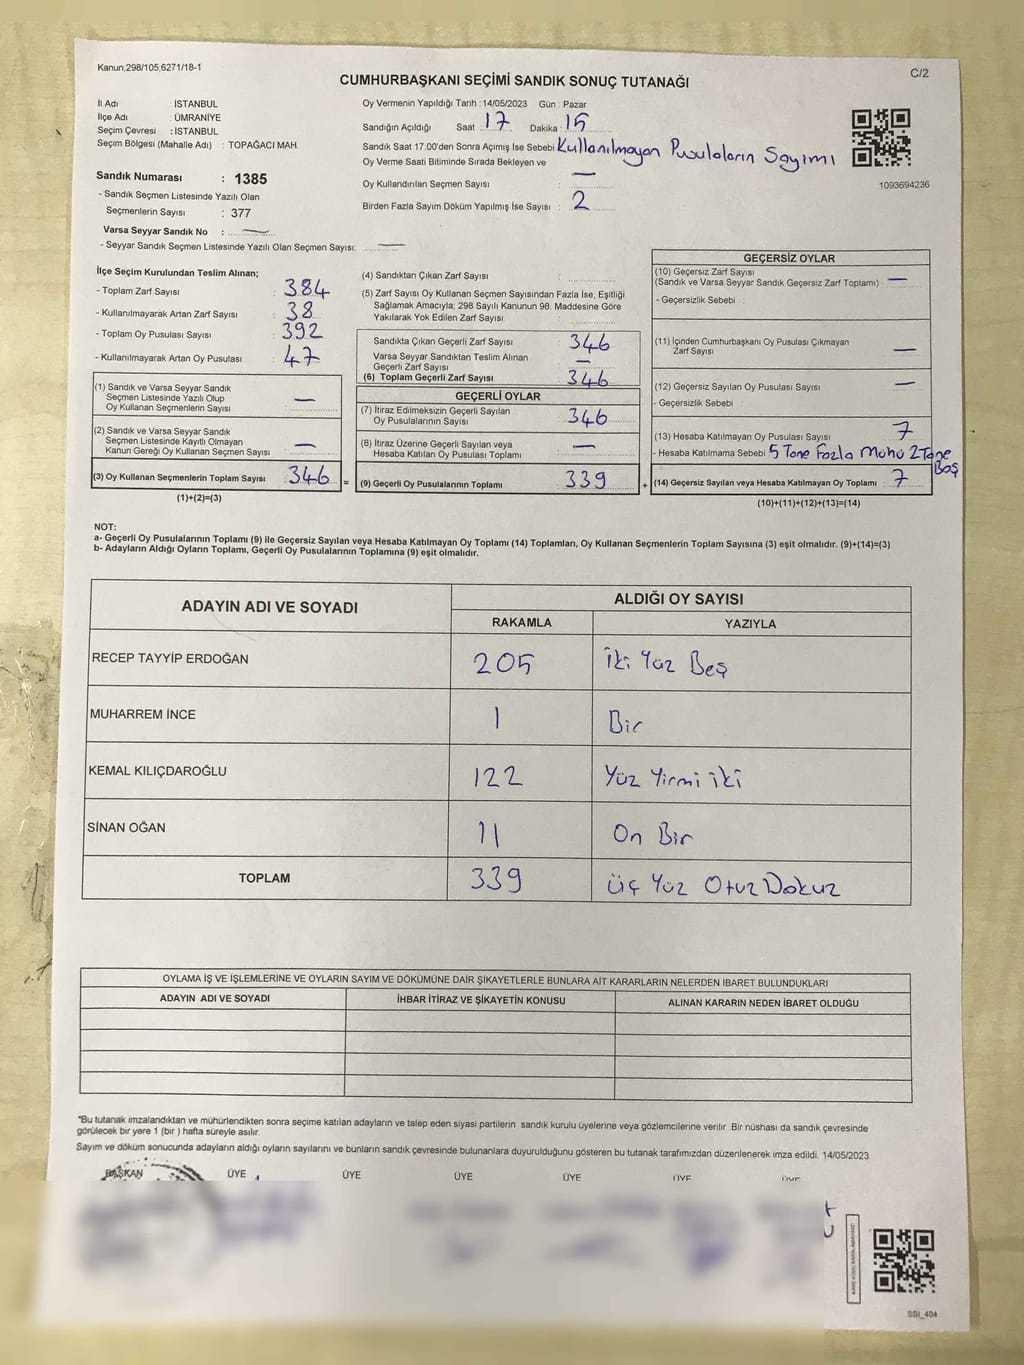 Kanun,298/105,6271/18-1
C/2
CUMHURBAŞKANI SEÇİMİ SANDIK SONUÇ TUTANAĞI
İl Adı : İSTANBUL
İlçe Adı : ÜMRANİYE
Seçim Çevresi : İSTANBUL
Seçim Bölgesi (Mahalle Adı) : TOPAĞACI MAH.
Sandık Numarası : 1385
- Sandık Seçmen Listesinde Yazılı Olan
Seçmenlerin Sayısı : 377
Varsa Seyyar Sandık No : —
- Seyyar Sandık Seçmen Listesinde Yazılı Olan Seçmen Sayısı: —
Oy Vermenin Yapıldığı Tarih :14/05/2023 Gün : Pazar
Sandığın Açıldığı Saat : 17 Dakika : 15
Sandık Saat 17:00'den Sonra Açımış İse Sebebi Kullanılmayan Pusulaların Sayımı
Oy Verme Saati Bitiminde Sırada Bekleyen ve
Oy Kullandırılan Seçmen Sayısı : —
Birden Fazla Sayım Döküm Yapılmış İse Sayısı : 2
1093694236
İlçe Seçim Kurulundan Teslim Alınan;
- Toplam Zarf Sayısı : 384
- Kullanılmayarak Artan Zarf Sayısı : 38
- Toplam Oy Pusulası Sayısı : 392
- Kullanılmayarak Artan Oy Pusulası : 47
(1) Sandık ve Varsa Seyyar Sandık
Seçmen Listesinde Yazılı Olup
Oy Kullanan Seçmenlerin Sayısı : —
(2) Sandık ve Varsa Seyyar Sandık
Seçmen Listesinde Kayıtlı Olmayan
Kanun Gereği Oy Kullanan Seçmen Sayısı : —
(3) Oy Kullanan Seçmenlerin Toplam Sayısı : 346 =
(1)+(2)=(3)
(4) Sandıktan Çıkan Zarf Sayısı :
(5) Zarf Sayısı Oy Kullanan Seçmen Sayısından Fazla İse, Eşitliği
Sağlamak Amacıyla; 298 Sayılı Kanunun 98. Maddesine Göre
Yakılarak Yok Edilen Zarf Sayısı :
Sandıkta Çıkan Geçerli Zarf Sayısı : 346
Varsa Seyyar Sandıktan Teslim Alınan
Geçerli Zarf Sayısı : —
(6) Toplam Geçerli Zarf Sayısı : 346
GEÇERLİ OYLAR
(7) İtiraz Edilmeksizin Geçerli Sayılan
Oy Pusulalarının Sayısı : 346
(8) İtiraz Üzerine Geçerli Sayılan veya
Hesaba Katılan Oy Pusulaları Toplamı : —
(9) Geçerli Oy Pusulalarının Toplamı : 339 +
GEÇERSİZ OYLAR
(10) Geçersiz Zarf Sayısı
(Sandık ve Varsa Seyyar Sandık Geçersiz Zarf Toplamı) : —
- Geçersizlik Sebebi :
(11) İçinden Cumhurbaşkanı Oy Pusulası Çıkmayan
Zarf Sayısı : —
(12) Geçersiz Sayılan Oy Pusulası Sayısı : —
- Geçersizlik Sebebi :
(13) Hesaba Katılmayan Oy Pusulası Sayısı : 7
- Hesaba Katılmama Sebebi : 5 Tane Fazla Mühü 2 Tane
Boş
(14) Geçersiz Sayılan veya Hesaba Katılmayan Oy Toplamı : 7
(10)+(11)+(12)+(13)=(14)
NOT:
a- Geçerli Oy Pusulalarının Toplamı (9) ile Geçersiz Sayılan veya Hesaba Katılmayan Oy Toplamı (14) Toplamları, Oy Kullanan Seçmenlerin Toplam Sayısına (3) eşit olmalıdır. (9)+(14)=(3)
b- Adayların Aldığı Oyların Toplamı, Geçerli Oy Pusulalarının Toplamına (9) eşit olmalıdır.
ADAYIN ADI VE SOYADI ALDIĞI OY SAYISI
RAKAMLA YAZIYLA
RECEP TAYYİP ERDOĞAN 205 İki Yüz Beş
MUHARREM İNCE 1 Bir
KEMAL KILIÇDAROĞLU 122 Yüz Yirmi iki
SİNAN OĞAN 11 On Bir
TOPLAM 339 Üç Yüz Otuz Dokuz
OYLAMA İŞ VE İŞLEMLERİNE VE OYLARIN SAYIM VE DÖKÜMÜNE DAİR ŞİKAYETLERLE BUNLARA AİT KARARLARIN NELERDEN İBARET BULUNDUKLARI
ADAYIN ADI VE SOYADI İHBAR İTİRAZ VE ŞİKAYETİN KONUSU ALINAN KARARIN NEDEN İBARET OLDUĞU
*Bu tutanak imzalandıktan ve mühürlendikten sonra seçime katılan adayların ve talep eden siyasi partilerin sandık kurulu üyelerine veya gözlemcilerine verilir. Bir nüshası da sandık çevresinde
görülecek bir yere 1 (bir ) hafta süreyle asılır.
Sayım ve döküm sonucunda adayların aldığı oyların sayılarını ve bunların sandık çevresinde bulunanlara duyurulduğunu gösteren bu tutanak tarafımızdan düzenlenerek imza edildi. 14/05/2023
BAŞKAN ÜYE ÜYE ÜYE ÜYE ÜYE ÜYE
SSI_404